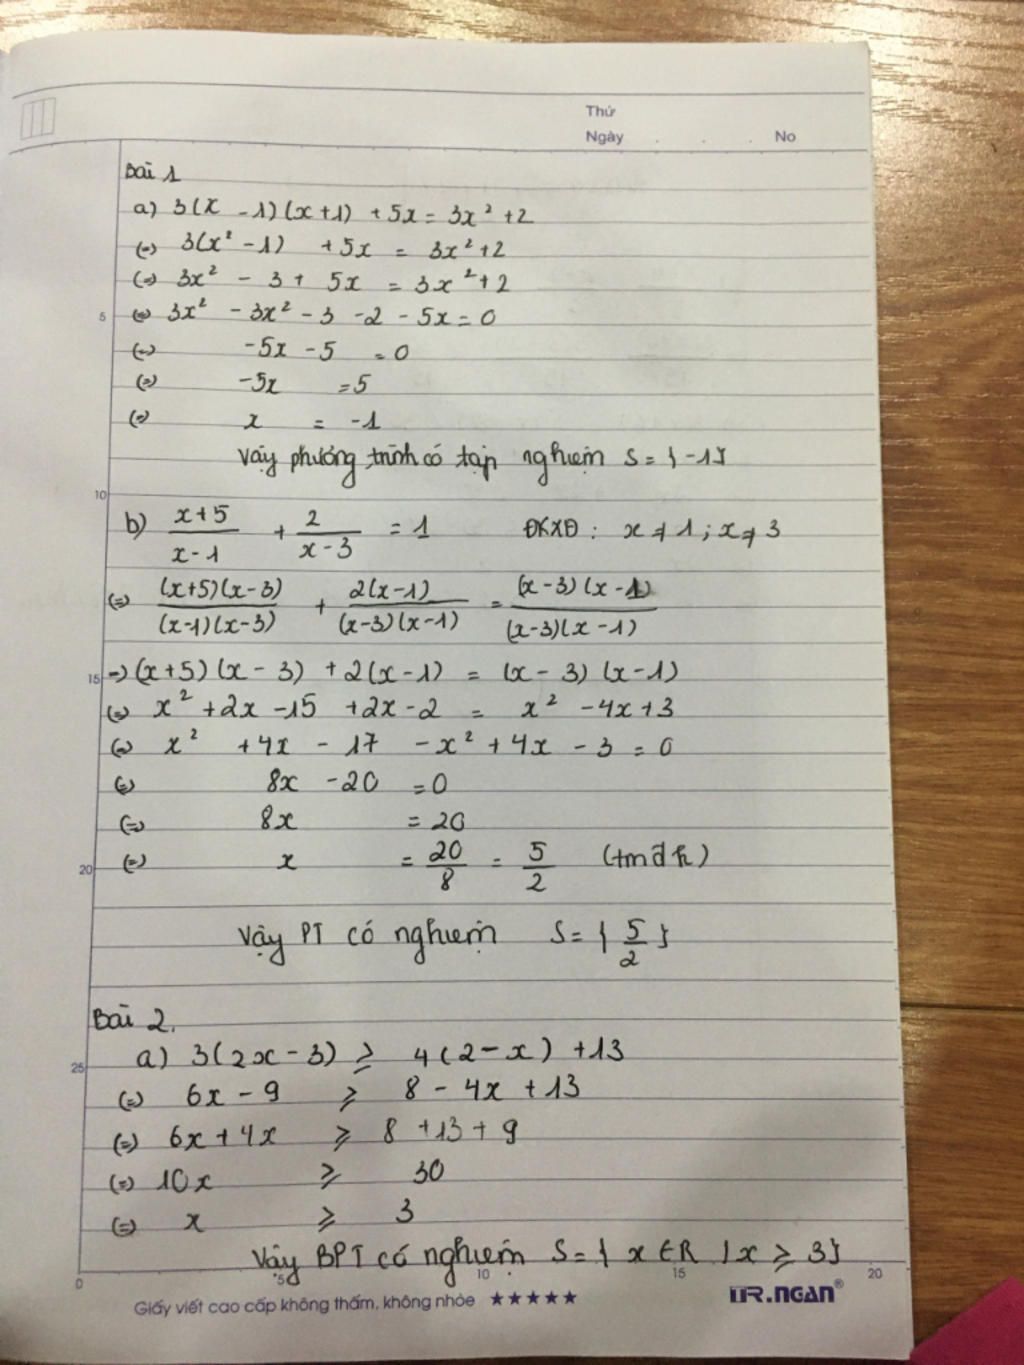 Thứ
Ngày . . . No
Bài 1
a) 3(x - 1)(x+1) + 5x = 3x² + 2
(=) 3(x² - 1) + 5x = 3x² + 2
(=) 3x² - 3 + 5x = 3x² + 2
5 (=) 3x² - 3x² - 3 - 2 - 5x = 0
(=) -5x - 5 = 0
(=) -5x = 5
(=) x = -1
Vậy phương trình có tập nghiệm S = { -1}
10
b) (x+5)/(x-1) + 2/(x-3) = 1 ĐKXĐ : x ≠ 1 ; x ≠ 3
(=) (x+5)(x-3)/(x-1)(x-3) + 2(x-1)/(x-3)(x-1) = (x-3)(x-1)/(x-3)(x-1)
15 =) (x+5)(x - 3) + 2(x-1) = (x - 3)(x-1)
(=) x² + 2x - 15 + 2x - 2 = x² - 4x + 3
(=) x² + 4x - 17 - x² + 4x - 3 = 0
(=) 8x - 20 = 0
(=) 8x = 20
20 (=) x = 20/8 = 5/2 (tmđk)
Vậy PT có nghiệm S = { 5/2 }
Bài 2.
25 a) 3(2x - 3) ≥ 4(2 - x) + 13
(=) 6x - 9 ≥ 8 - 4x + 13
(=) 6x + 4x ≥ 8 + 13 + 9
(=) 10x ≥ 30
(=) x ≥ 3
Vậy BPT có nghiệm S = { x ∈ R | x ≥ 3}
0 5 10 15 20
Giấy viết cao cấp không thấm, không nhòe ★★★★★ TR.NGAN®